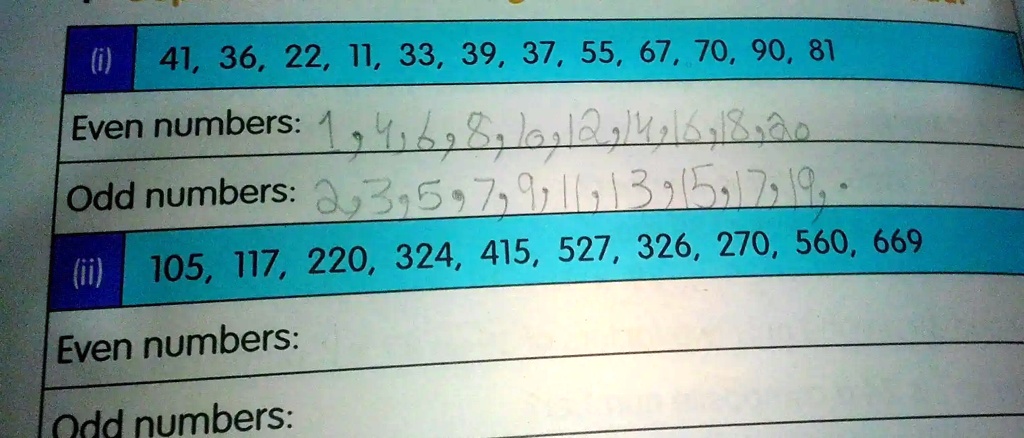 (i) 41, 36, 22, 11, 33, 39, 37, 55, 67, 70, 90, 81
Even numbers: 1,4,6,8,10,12,14,16,18,20
Odd numbers: 2,3,5,7,9,11,13,15,17,19,.
(ii) 105, 117, 220, 324, 415, 527, 326, 270, 560, 669
Even numbers:
Odd numbers: